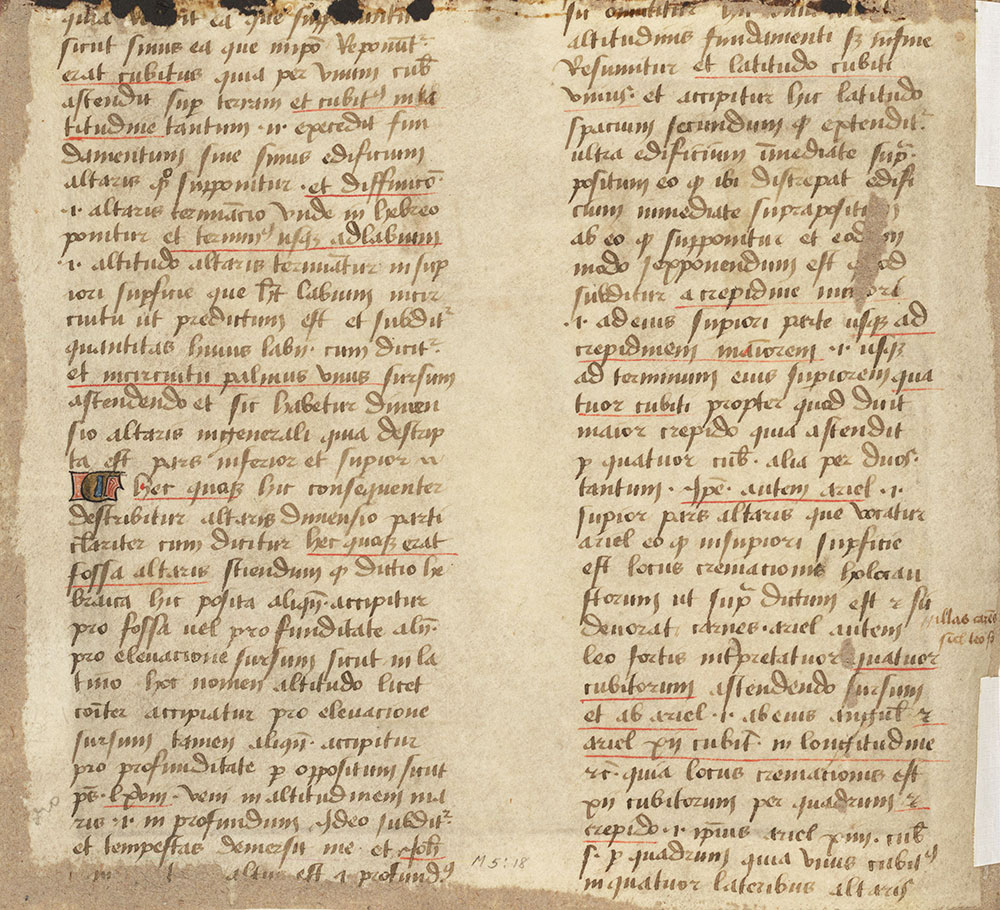 sicut sinus ea que in ipō Reponūt᷑
erat cubitus quia per vnum cub̄
astendit sup̄ terram et cubitꝰ in la
titudine tantum ·i· excedit fun
damentum siue sinus edificium
altaris qͦ supponitur · et diffinicō
·i· altaris terminacio vnde in hebreo
ponitur et terminꝰ usqꝫ ad labium
·i· altitudo altaris terminatur in sup
iori supficie que hꝫ labium in cir
cuitu ut predictum est et subdit᷑
quantitas huius labij · cum dicit᷑
et incircuitu palmus vnus sursum
astendendo et sic habetur dimen
sio altaris ingenerali quia descrip
ta est pars inferior et supior
hec quoqꝫ hic consequenter
describitur altaris dimensio parti
clariter cum dicitur hec quoqꝫ erat
fossa altaris sciendum ꝙ dictio he
braica hic posita aliqn̄ · accipitur
pro fossa uel profunditate aliqn̄ ·
pro eleuacione sursum sicut in la
tino hoc nomen altitudo licet
coīter accipiatur pro eleuacione
sursum tamen aliqn̄ · accipitur
pro profunditate p oppositum sicut
ps̄ · lxviij · veni in altitudinem ma
ris ·i· in profundum Ideo subdit᷑
et tempestas demersit me · et Joh̄
altus est ·i· profundꝰ
M 5:18
altitudinis fundamenti sꝫ in fine
Resumitur et latitudo cubiti
vnius · et accipitur hic latitudo
spacium secundum ꝙ extendit᷑
ultra edificium īmediate sup̄
positum eo ꝙ ibi discrepat edifi
cium inmediate suprapositum
ab eo ꝙ supponitur et eodem
modo exponendum est quod
subditur a crepidine minori
·i· ad eius supiori parte usqꝫ ad
crepidinem maiorem ·i· usqꝫ
ad terminum eius supiorem qua
tuor cubiti propter quod dicit
maior crepido quia astendit
p quatuor cub̄ · alia per duos ·
tantum · Ip̄e · autem ariel ·i·
supior pars altaris que vocatur
ariel eo ꝙ in supiori supficie
est locus cremacionis holocau
storum ut sup̄ dictum est
deuorat carnes · ariel autem
leo fortis intpretatuor quatuor
cubitorum astendendo sursum
et ab ariel ·i· ab eius
ariel xij cubit̄ · in longitudine
rc̄ · quia locus cremacionis est
xij cubitorum per quadrum et
crepido ·i· ip̄ius ariel xiiij · cub̄
s · p quadrum quia vnus cubitꝰ
in quatuor lateribus altaris
illas carnes
sicut leo